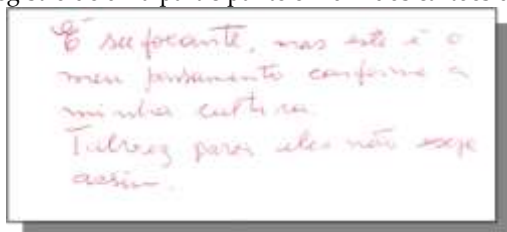 É sufocante, mas este é o
meu pensamento conforme a
minha cultura.
Talvez para eles não seja
assim.